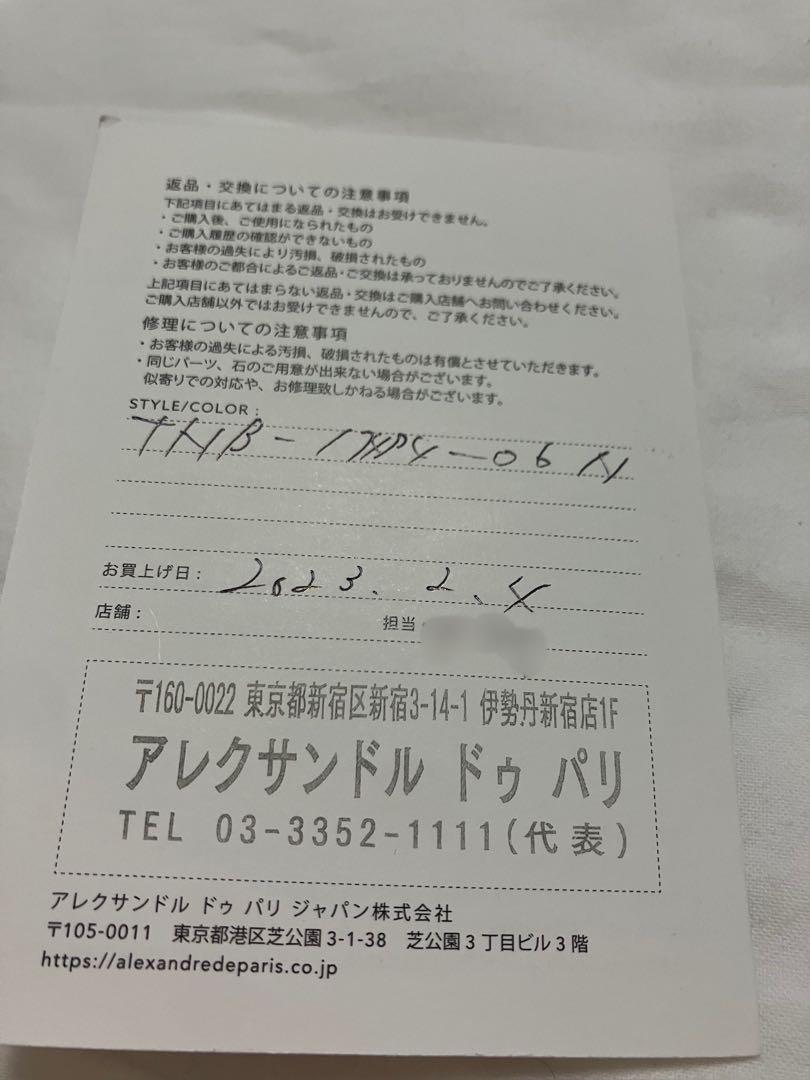 返品・交換についての注意事項
下記項目にあてはまる返品・交換はお受けできません。
・ご購入後、ご使用になられたもの
・ご購入履歴の確認ができないもの
・お客様の過失により汚損、破損されたもの
・お客様のご都合によるご返品・ご交換は承っておりませんのでご了承ください。
上記項目にあてはまらない返品・交換はご購入店舗へお問い合わせください。
ご購入店舗以外ではお受けできませんので、ご了承ください。
修理についての注意事項
・お客様の過失による汚損、破損されたものは有償とさせていただきます。
・同じパーツ、石のご用意が出来ない場合がございます。
似寄りでの対応や、お修理致しかねる場合がございます。
STYLE/COLOR :
06 N
お買上げ日 : 2023. 2. 4
店舗 : 担当
〒160-0022 東京都新宿区新宿3-14-1 伊勢丹新宿店1F
アレクサンドル ドゥ パリ
TEL 03-3352-1111(代表)
アレクサンドル ドゥ パリ ジャパン株式会社
〒105-0011 東京都港区芝公園3-1-38 芝公園3丁目ビル3階
https://alexandredeparis.co.jp